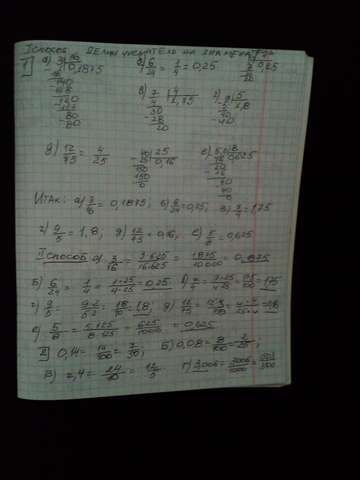 I способ делим числитель на знаменатель
I а) 3 16 0,1875 б) 6/24 = 1/4 = 0,25
в) 7 4 1,75 г) 9 5 1,8
д) 12/75 = 4/25 0,16 е) 5,0 8 0,625
Итак: а) 3/16 = 0,1875; б) 6/24 = 0,25; в) 7/4 = 1,75
г) 9/5 = 1,8, д) 12/75 = 0,16, е) 5/8 = 0,625
II способ а) 3/16 = 3·625/16·625 = 1875/10000 = 0,1875
б) 6/24 = 1/4 = 1·25/4·25 = 0,25 в) 7/4 = 7·25/4·25 = 175/100 = 1,75
г) 9/5 = 9·2/5·2 = 18/10 = 1,8 д) 12/75
е) 5/8 = 5·125/8·125 = 625/1000 = 0,625
II 0,14 = 14/100 = 7/50; б) 0,08 = 8/100 = 2/25;
в) 2,4 = 24/10 = 12/5 г) 3,006 = 3006/1000